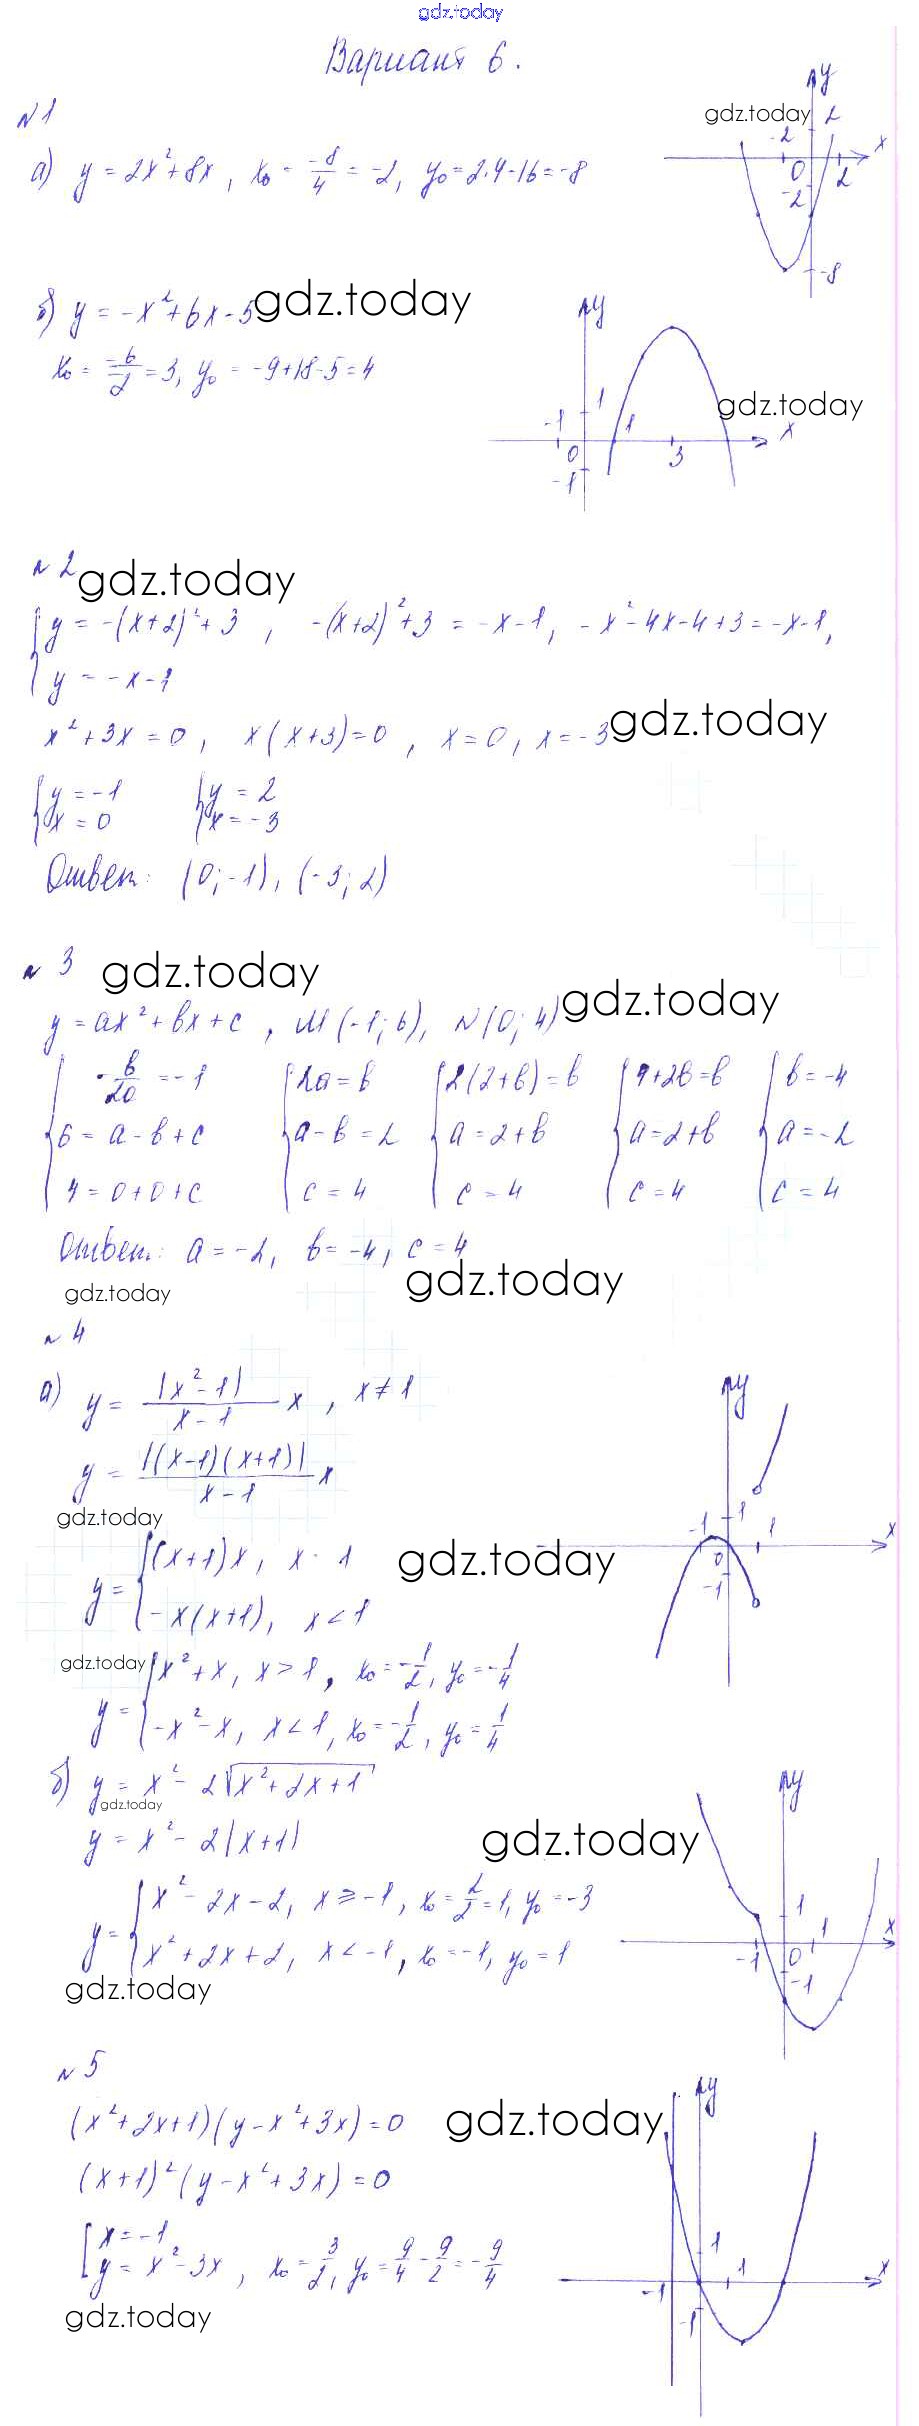 gdz.today
Вариант 6.
№1
а) y = 2x² + 8x, x₀ = -8/4 = -2, y₀ = 2·4-16 = -8
gdz.today
y
2
-2
x
0
2
-2
-8
б) y = -x² + 6x - 5
gdz.today
x₀ = -6/-2 = 3, y₀ = -9+18-5 = 4
y
gdz.today
1
-1
1
x
0
3
-1
№2
gdz.today
{ y = -(x+2)² + 3, -(x+2)² + 3 = -x-1, -x²-4x-4+3 = -x-1,
y = -x-1
x² + 3x = 0, x(x+3) = 0, x = 0, x = -3
gdz.today
{ y = -1 { y = 2
x = 0 x = -3
Ответ: (0; -1), (-3; 2)
№3
gdz.today
gdz.today
y = ax² + bx + c, M(-1; 6), N(0; 4)
{ -b/2a = -1 { 2a = b { 2(2+b) = b { 4+2b = b { b = -4
6 = a - b + c a - b = 2 a = 2+b a = 2+b a = -2
4 = 0+0+c c = 4 c = 4 c = 4 c = 4
Ответ: a = -2, b = -4, c = 4
gdz.today
gdz.today
№4
а) y = |x²-1|/(x-1) x, x ≠ 1
y = |(x-1)(x+1)|/(x-1) x
gdz.today
y = { (x+1)x, x 1
-x(x+1), x < 1
gdz.today
gdz.today
y = { x² + x, x > 1, x₀ = -1/2, y₀ = -1/4
-x² - x, x < 1, x₀ = -1/2, y₀ = 1/4
y
-1
1
1
x
0
-1
б) y = x² - 2√(x²+2x+1)
gdz.today
y = x² - 2|x+1|
gdz.today
y = { x² - 2x - 2, x ≥ -1, x₀ = 2/2 = 1, y₀ = -3
x² + 2x + 2, x < -1, x₀ = -1, y₀ = 1
gdz.today
y
1
1
x
-1
0
-1
№5
(x²+2x+1)(y-x²+3x) = 0
gdz.today
(x+1)²(y-x²+3x) = 0
[ x = -1
y = x² - 3x, x₀ = 3/2, y₀ = 9/4 - 9/2 = -9/4
gdz.today
y
1
1
x
-1
-1